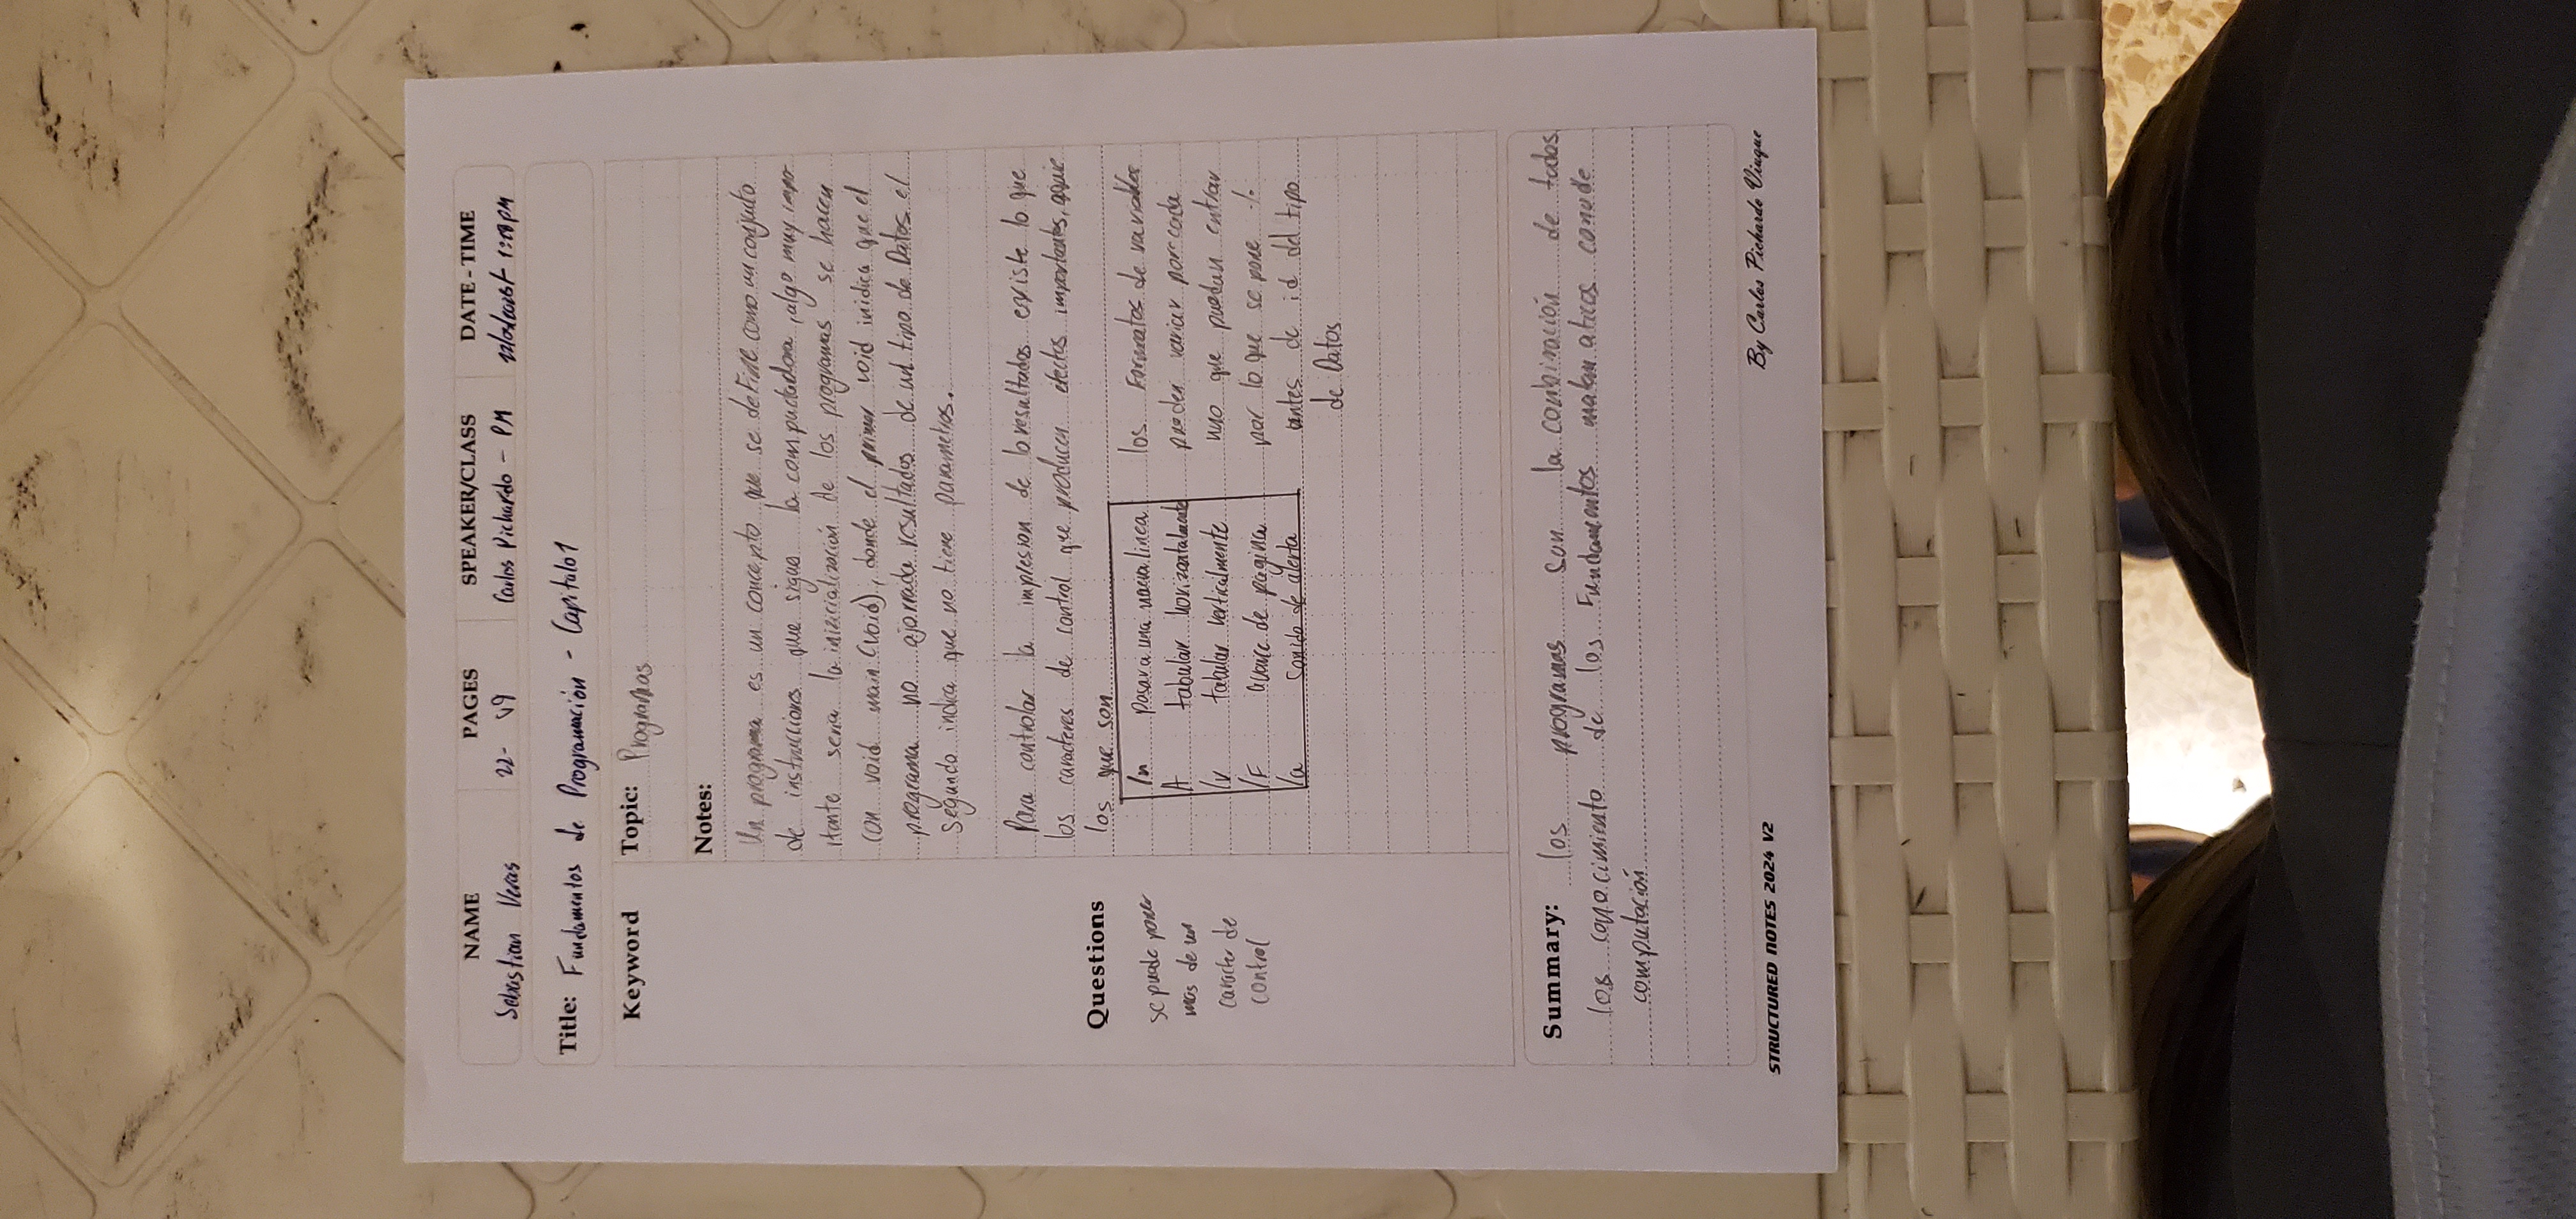 NAME PAGES SPEAKER/CLASS DATE-TIME
Sebastian Veras 22- Carlos Pichardo - PM
Title: Fundamentos de Programación - Capitulo 1
Keyword
Topic: Programas
Notes:
Un programa es un concepto que se define como un conjuto
de instrucciones que sigue la computadora, algo muy impo
rtante seria la inizicialización de los programas se hacen
con void main (void), donde el primer void inidica que el
programa no ajorrada resultados de un tipo de Datos el
segundo indica que no tiene parametros.
Para controlar la impresion de lo resultados existe lo que
los caracteres de control que producen efectos importantes,
los que son
/n pasar a una nueva linea
tabular horizontalmente
/v tabular verticalmente
/F avance de pagina
/a sonido de alerta
los Formatos de variables
pueden variar por cada
uno que puedan entrar
por lo que se pone %
antes de id del tipo
de Datos
Questions
se puede poner
mas de un
caracter de
control
Summary: los programas son la conbinación de todos
los conocimiento de los Fundamentos matematicos
computación
STRUCTURED NOTES 2024 V2
By Carlos Pichardo Viuque